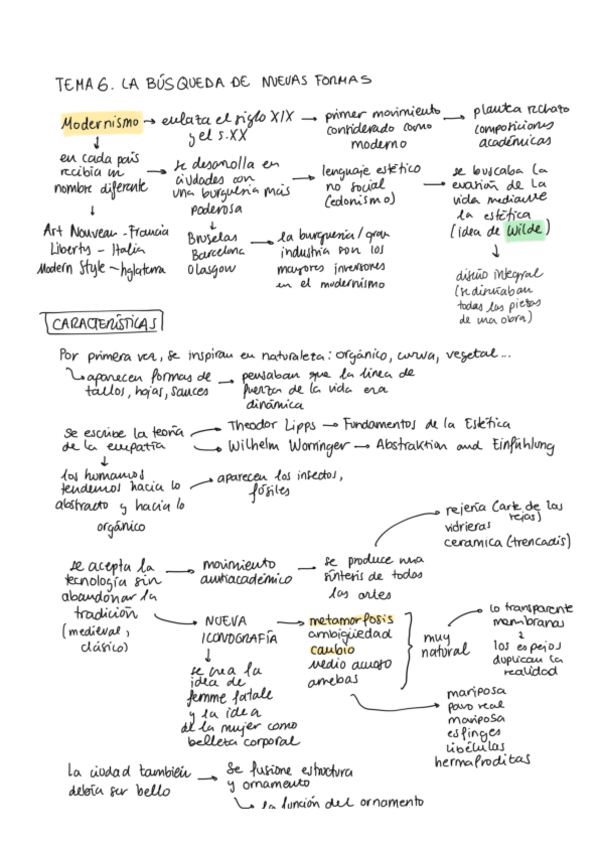 TEMA 6. LA BÚSQUEDA DE NUEVAS FORMAS
Modernismo → enlaza el siglo XIX → primer movimiento → plantea rechazo
y el s.XX considerado como composiciones
moderno académicas
en cada país
recibía un
nombre diferente
→ se desarrolla en
ciudades con
una burguería más
poderosa
→ lenguaje estético
no social
(edonismo)
→ se buscaba la
evasión de la
vida mediante
la estética
(idea de Wilde)
Art Nouveau - Francia
Liberty - Italia
Modern Style - Inglaterra
Bruselas
Barcelona
Glasgow
→ la burguería / gran
industria son los
mayores inversores
en el modernismo
diseño integral
(se diseñaban
todas las piezas
de una obra)
CARACTERÍSTICAS
Por primera vez, se inspiran en naturaleza: orgánico, curva, vegetal...
aparecen formas de
tallos, hojas, sauces
→ pensaban que la línea de
fuerza de la vida era
dinámica
se escribe la teoría
de la empatía
Theodor Lipps → Fundamentos de la Estética
Wilhelm Worringer → Abstraktion and Einfühlung
los humanos
tendemos hacia lo
abstracto y hacia lo
orgánico
→ aparecen los insectos,
fósiles
se acepta la
tecnología sin
abandonar la
tradición
(medieval,
clásico)
→ movimiento
antiacadémico
→ se produce una
síntesis de todas
las artes
rejería (arte de las
rejas)
vidrieras
ceramica (trencadis)
NUEVA
ICONOGRAFÍA
→ metamorfosis
ambigüedad
cambio
Medio acuoso
amebas
muy
natural
lo transparente
membranas
los espejos
duplican la
realidad
se crea la
idea de
femme fatale
y la idea
de la mujer como
belleza corporal
mariposa
pavo real
mariposa
esfinges
libélulas
hermafroditas
La ciudad también
debía ser bello
→ Se fusione estructura
y ornamento
la función del ornamento